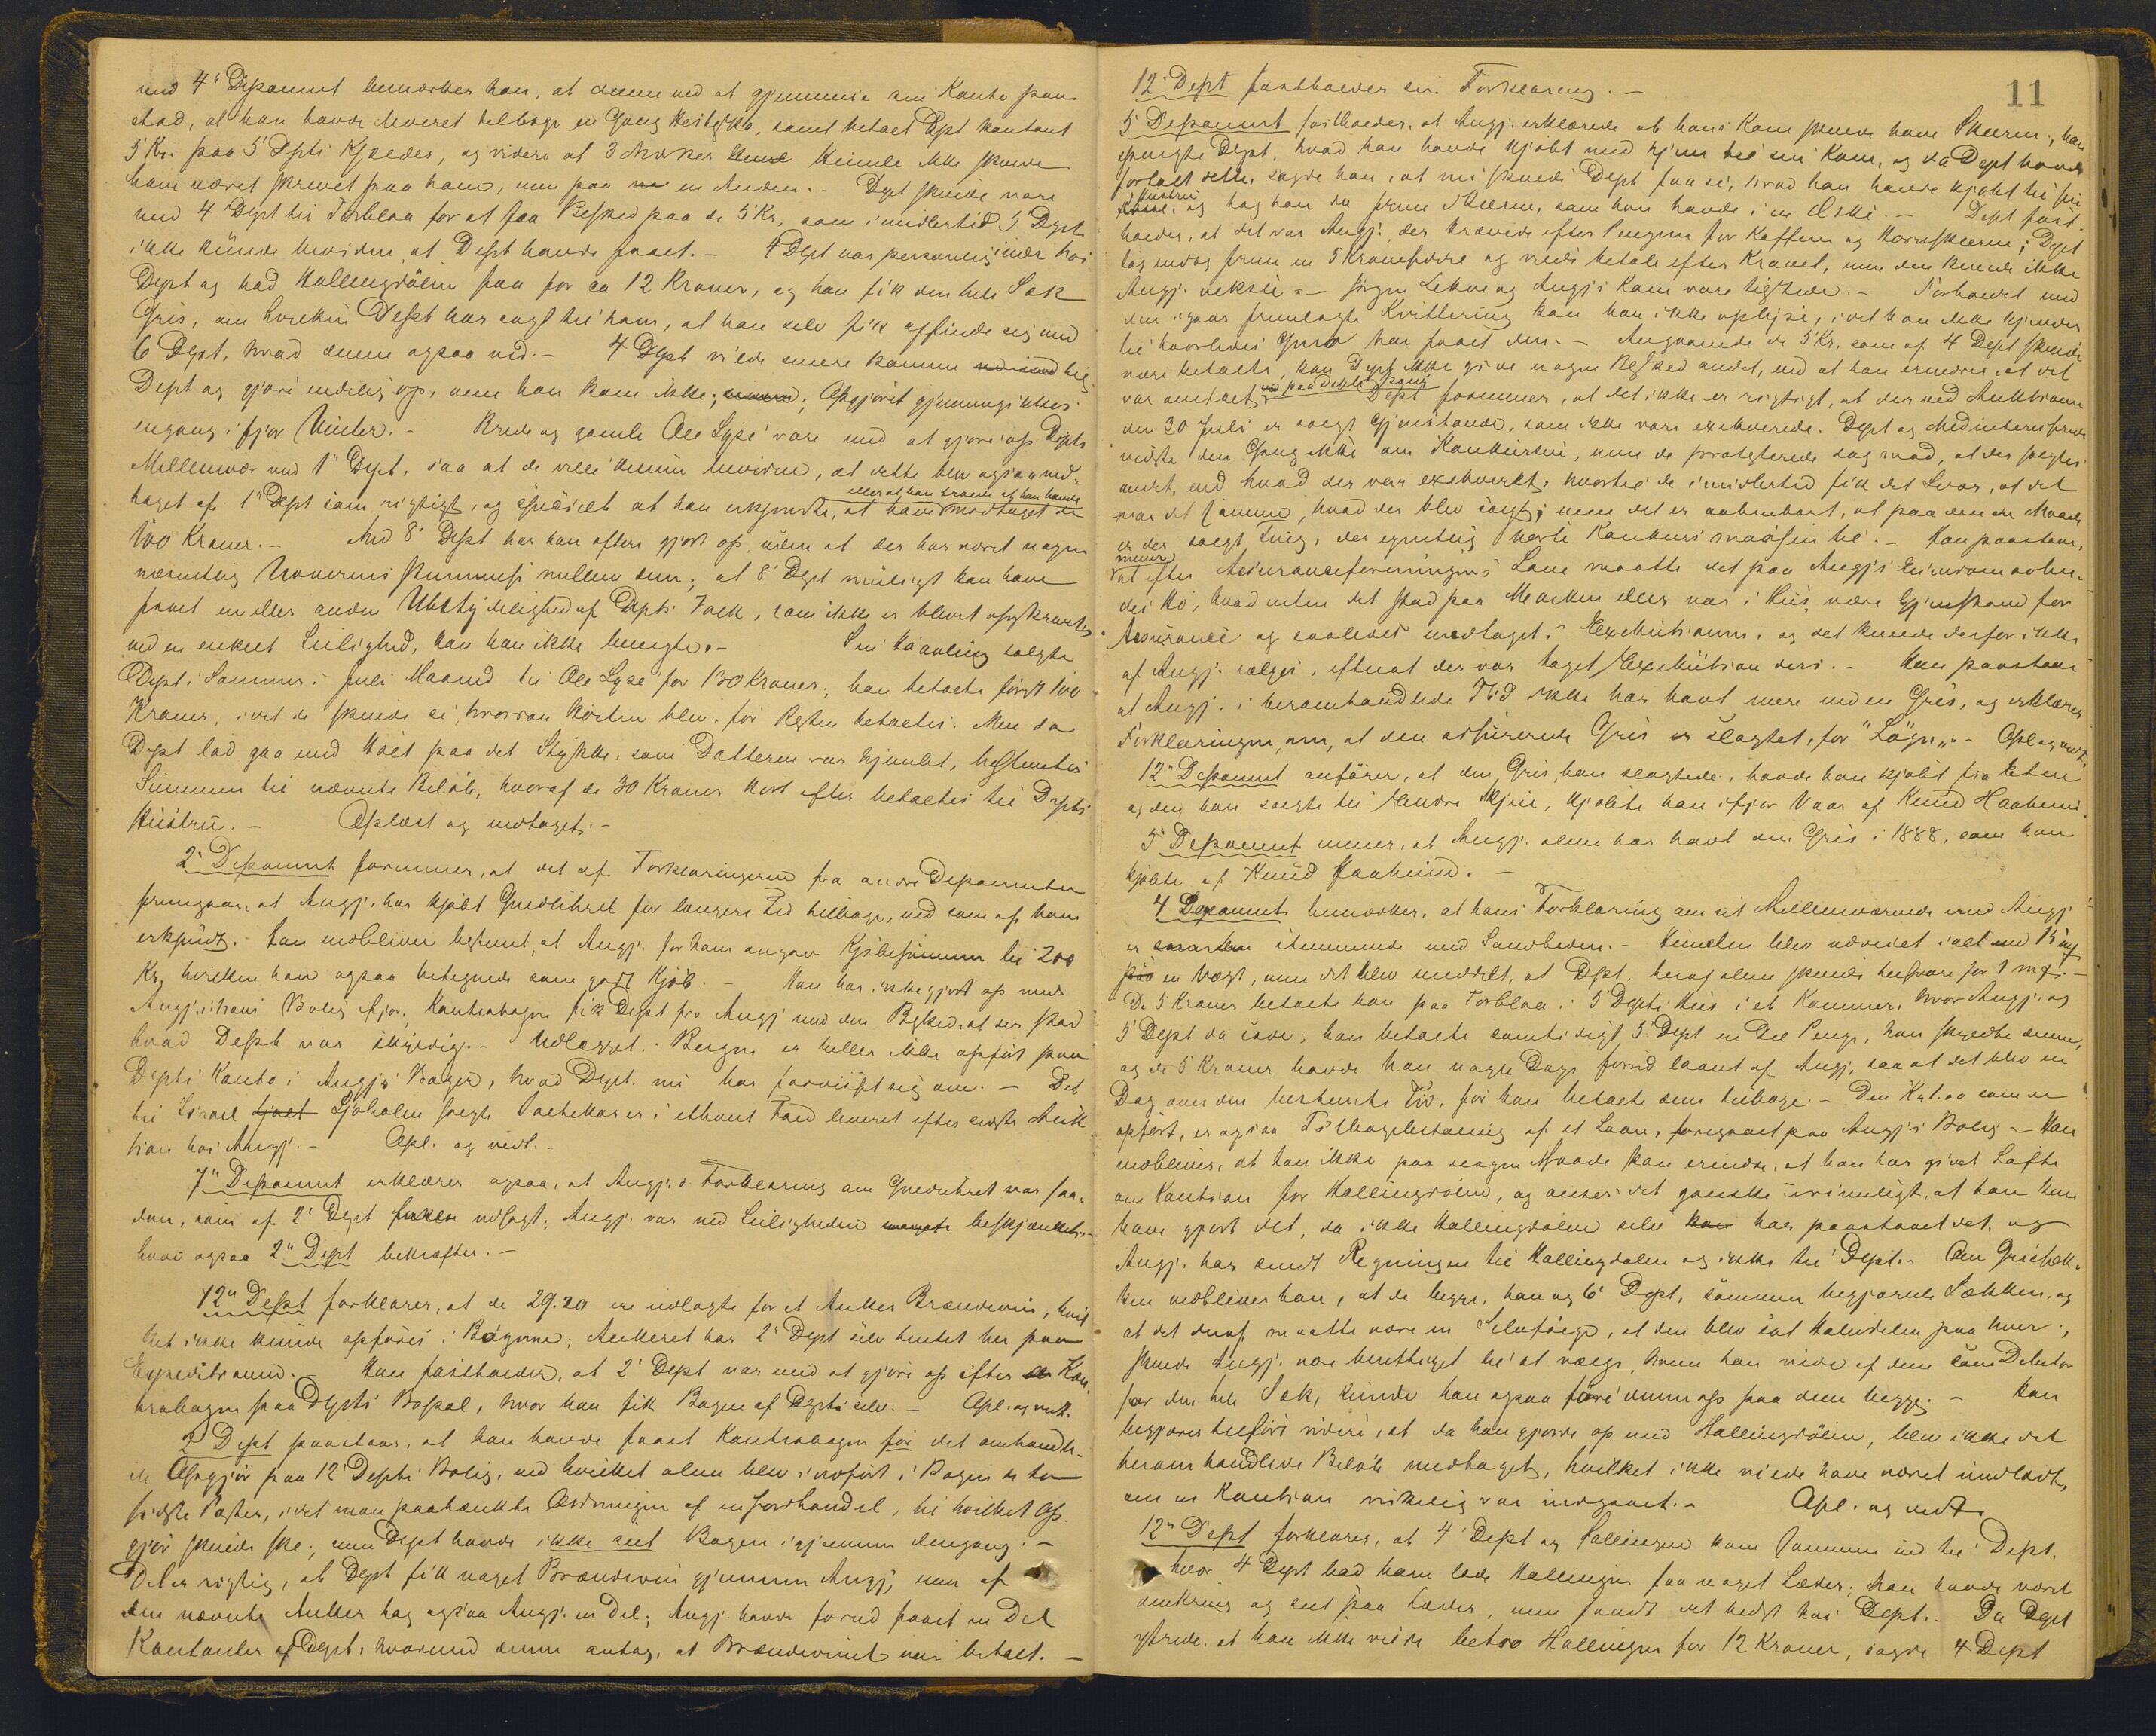 med 4' Deponent bemærker han, at denne ved at gjennemse sin Konto paa-
stod, at han havde leveret tilbage en Gang Hestesko, samt betalt Dept kontant
5 Kr. paa 5' Depts Kjælder, og videre at 3 Merker Humle ikke skulde
have været skrevet paa ham, men paa en Anden. - Dept skulde være
med 4' Dept til Torblaa for at faa Besked paa de 5 Kr., som imidlertid 5' Dept
ikke kunde bevidne at Dept havde faaet. - 4 Dept var personlig inde hos
Dept og bad Hallingdölen faa for ca 12 Kroner, og han fik den hele Sæk
Gris, om hvilken Dept har sagt til ham, at han selv fik affinde sig med
6 Dept, hvad denne ogsaa ved. - 4 Dept vilde senere komme til
Dept og gjöre endelig op, men han kom ikke; Opgjöret gjennemgikkes
engang i fjor Vinter. - Brede og gamle Ole Lyse vare med at gjöre op Depts
Mellemvær med 1' Dept, saa at de ville kunne bevidne, at dette blev ogsaa ved-
taget af 1' Dept som rigtigt, og specielt at han erkjendte, at have modtaget de
eller at han troede at han havde
100 Kroner. - Med 8' Dept har han oftere gjort op, uden at der har været nogen
nævnelig Uoverensstemmelse mellem dem; at 8' Dept muligt kan have
faaet en eller anden Ubetydelighed af Depts Folk, som ikke er blevet opskrevet
ved en enkelt Leilighed, kan han ikke benegte. - Sin Haavling solgte
Dept i Sommer i Juli Maaned til Ole Lyse for 130 Kroner; han betalte først 100
Kroner, idet de skulde se, hvordan Kosten blev, før Resten betaltes. Men da
Dept lod gaa med Höet paa det Stykke, som Datteren var hjemlet, bestemtes
Summen til nævnte Beløb, hvoraf de 30 Kroner kort efter betaltes til Depts
Hustru. - Oplæst og vedtaget. -
2' Deponent formener, at det af Forklaringerne fra andre Deponenter
fremgaar, at Angj. har kjøbt Gnedlihret for længere Tid tilbage, end som af ham
erkjendt. Han vedbliver bestemt, at Angj. for ham angav Kjöbesummen til 200
Kr, hvilken han ogsaa betegnede som godt Kjøb. - Han har ikke gjort op med
Angj. i hans Bolig ifjor. Kontrabogen fik Dept fra Angj med den Besked, at der stod
hvad Dept var skyldig. - Udlægget i Bergen er heller ikke opført paa
Depts Konto i Angj's Bøger, hvad Dept. nu har forvisset sig om. - Det
til Israel Sjöholen solgte Parti Kar er i ethvert Fald leveret efter sidste Auk
tion hos Angj. - Opl. og vedt. -
7' Deponent erklærer ogsaa, at Angj.s Forklaring om Gnedlihret var saa-
dan, som af 2' Dept udsagt; Angj. var ved Leiligheden beskjænket, -
hvad ogsaa 2' Dept bekræfter. -
12' Dept forklarer, at de 29.20 ere udlagte for et Anker Brændevin, hvil
ket ikke kunde opföres i Bögerne; Ankeret har 2' Dept selv hentet her paa
Expeditionen. - Han fastholder, at 2' Dept var med at gjöre op efter Kon-
trabogen paa Depts Bopæl, hvor han fik Bogen af Dept selv. - Opl. og vedt.
2 Dept paastaar, at han havde faaet Kontrabogen før det omhandle-
de Opgjör paa 12' Depts Bolig, ved hvilket alene blev indført i Bogen de to
sidste Poster, idet man paatænkte Ordningen af en Jordhandel, til hvilket Op-
gjör skulde ske; men Dept havde ikke set Bogen igjennem dengang. -
Det er rigtig, at Dept fik noget Brændevin gjennem Angj, men af
den nævnte Anker tog ogsaa Angj. en Del; Angj havde forud faaet en Del
Kontanter af Dept. hvormed denne antog, at Brændevinet var betalt. -
11
12' Dept fastholder sin Forklaring. -
5 Deponent fastholder, at Angj. erklærede at hans Kone skulde have Skeerne; han
spurgte Dept, hvad han havde kjøbt med hjem til sin Kone, og da Dept havde
fortalt dette, sagde han, at nu skulde Dept faa se, hvad han havde kjøbt til sin
Hustru, og tog han da frem Skeerne, som han havde i en Æske. - Dept fast-
holder, at det var Angj., der krævede efter Pengene for Kaffen og Hornskeerne; Dept
tog endog frem en 5 Kroneseddel og vilde betale efter Kravet, men den kunde ikke
Angj. veksle. - Jörgen Lekve og Angj's Kone vare tilstede. - Forholdet med
den igaar fremlagte Kvittering kan han ikke oplyse, idet han ikke kjender
til hvorledes Gjerd har faaet den. - Angaaende de 5 Kr, som af 4 Dept skulde
være betalte, kan Dept ikke give nogen Besked andet, end at han erindrer, at det
var omtalt, - Dept formener, at det ikke er rigtigt, at der ved Auktionen
den 30 Juli er solgt Gjenstande, som ikke vare exekverede. Dept og Medinteresserede
vidste den Gang ikke om Konkursen, men de protesterede dog mod, at der solgtes
andet, end hvad der var exekveret, hvortil de imidlertid fik det Svar, at det
var det samme, hvad der blev solgt; men det er aabenbart, at paa denne Maade
er der solgt Ting, der egentlig hørte Konkursmassen til. - Han paastaar,
at efter Assuranceforeningens Love maatte det paa Angj's Eiendom avlen-
des Hö, hvad enten det stod paa Marken eller var i Hus, være Gjenstand for
Assurance og saaledes medtaget i Exekutionen, og det kunde derfor ikke
af Angj. sælges, efterat der var taget Exekution deri. - Han paastaar
at Angj. i heromhandlede Tid ikke har havt mere end en Gris, og erklærer
Forklaringen om, at den assurerede Gris er slagtet, for "Lögn". - Opl og vedt.
12' Deponent anförer, at den Gris, han slagtede, havde han kjøbt fra Eben
og den han solgte til Hendre Kjen, kjøbte han ifjor Vaar af Knud Haaheim.
5' Deponent mener, at Angj. alene har havt en Gris i 1888, som han
kjøbte af Knud Haaheim. -
4 Deponent bemærker, at hans Forklaring om sit Mellemværende med Angj
er stemmende med Sandheden. - Humlen blev udveiet i alt med 15 mg
en Vægt, men det blev meddelt, at Dept. heraf alene skulde tilsvare for 1 mg. -
De 5 Kroner betalte han paa Torblaa i 5' Depts Hus i et Kammer, hvor Angj. og
5 Dept da sade; han betalte samtidigt 5' Dept en Del Penge, han skyldte denne,
og de 5 Kroner havde han nogle Dage forud laant af Angj, saa at det blev en
Dag over den bestemte Tid, før han betalte dem tilbage. - Den Kr 1.00 som er
opført, er ogsaa Tilbagebetaling af et Laan, foregaaet paa Angj's Bolig - Han
vedbliver, at han ikke paa nogen Maade kan erindre, at han har givet Løfte
om Kaution for Hallingdölen, og anser det ganske urimeligt, at han kan
have gjort det, da ikke Hallingdölen selv har paastaaet det, og
Angj. har sendt Regningen til Hallingdølen og ikke til Dept. - Om Grisesæk-
ken vedbliver han, at de begge, han og 6' Dept, sammen begjærede Sækken, og
at det deraf maatte være en Selvfølge, at den blev sat Halvdelen paa hver;
skulde Angj. være berettiget til at vælge, hvem han vilde af dem som Debitor
for den hele Sæk, kunde han ogsaa føre denne op paa dem begge. - Han
begjærer tilført videre, at da han gjorde op med Hallingdölen, blev ikke det
heromhandlede Beløb medtaget, hvilket ikke vilde have været undladt,
om en Kaution virkelig var indgaaet. - Opl. og vedt.
12' Dept forklarer, at 4' Dept og Hallingen kom sammen ind til Dept.
hvor 4 Dept bad ham lade Hallingen faa noget Læder; han havde været
omkring og set paa Læder, men fandt det bedst hos Dept. - Da Dept
ytrede, at han ikke vilde betro Hallingen for 12 Kroner, sagde 4 Dept